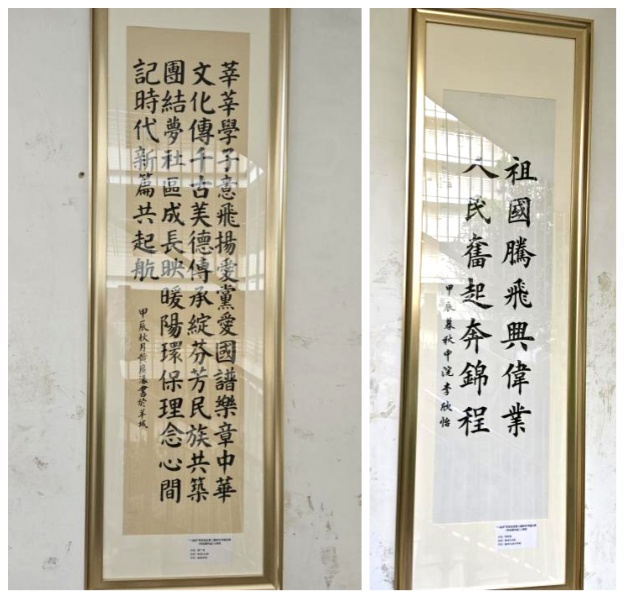 莘莘學子意飛揚愛黨愛國譜樂章中華
文化傳千古美德傳承綻芬芳民族共築
團結夢社區成長映暖陽環保理念心間
記時代新篇共起航
甲辰秋月
書於羊城
祖國騰飛興偉業
人民奮起奔錦程
甲辰暮秋中浣李欣怡